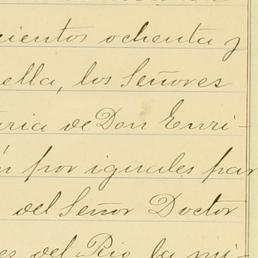 mientos ochenta y
ella, los Señores
aria de Don Enri-
n por iguales par
del Señor Doctor
es del Rio la mi-